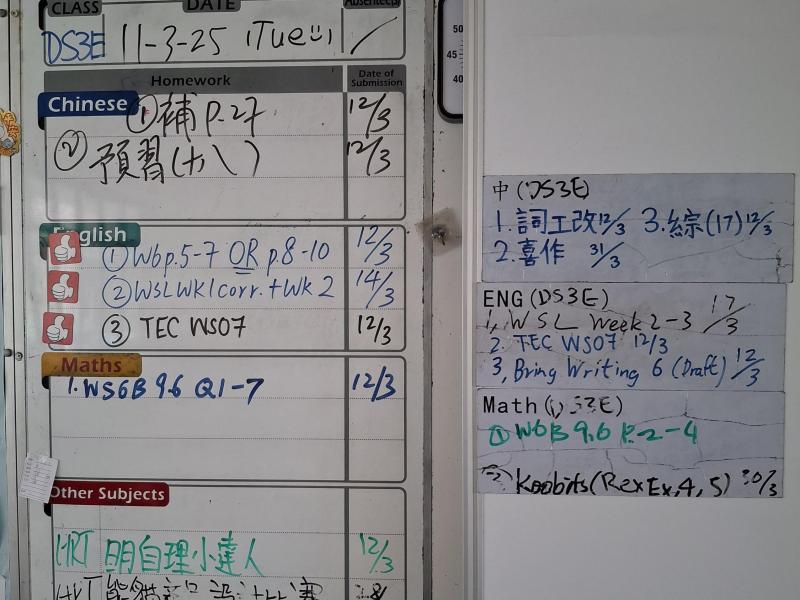 CLASS DATE Absentee(s)
DS3E 11-3-25 (Tue)
Homework Date of Submission
Chinese ① 補 p.27 12/3
② 預習(十八) 12/3
English
① Wb p.5-7 OR p.8-10 12/3
② WSL WK1 corr. + WK 2 14/3
③ TEC WS07 12/3
Maths
1. WS6B 9.6 Q1-7 12/3
Other Subjects
HRT 明自理小達人 12/3
HRT
50
45
40
中(DS3E)
1. 詞工改 12/3 3. 綜(17) 12/3
2. 喜作 31/3
ENG (DS3E)
1, WSL Week 2-3 17/3
2. TEC WS07 12/3
3, Bring Writing 6 (Draft) 12/3
Math (DS3E)
① W6B 9.6 P.2-4
Koobits (Rex Ex, 4, 5) 30/3